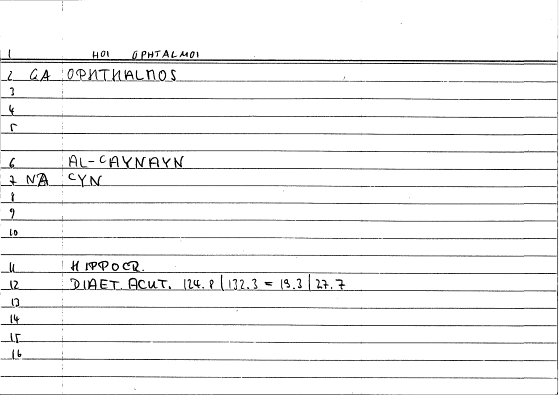 1 HOI OPHTALMOI
2 GA OPHTHALMOS
3
4
5
6 AL-ᶜAYNAYN
7 NA ᶜYN
8
9
10
11 HIPPOCR.
12 DIAET. ACUT. 124.8 | 132.3 = 19.3 | 27.7
13
14
15
16